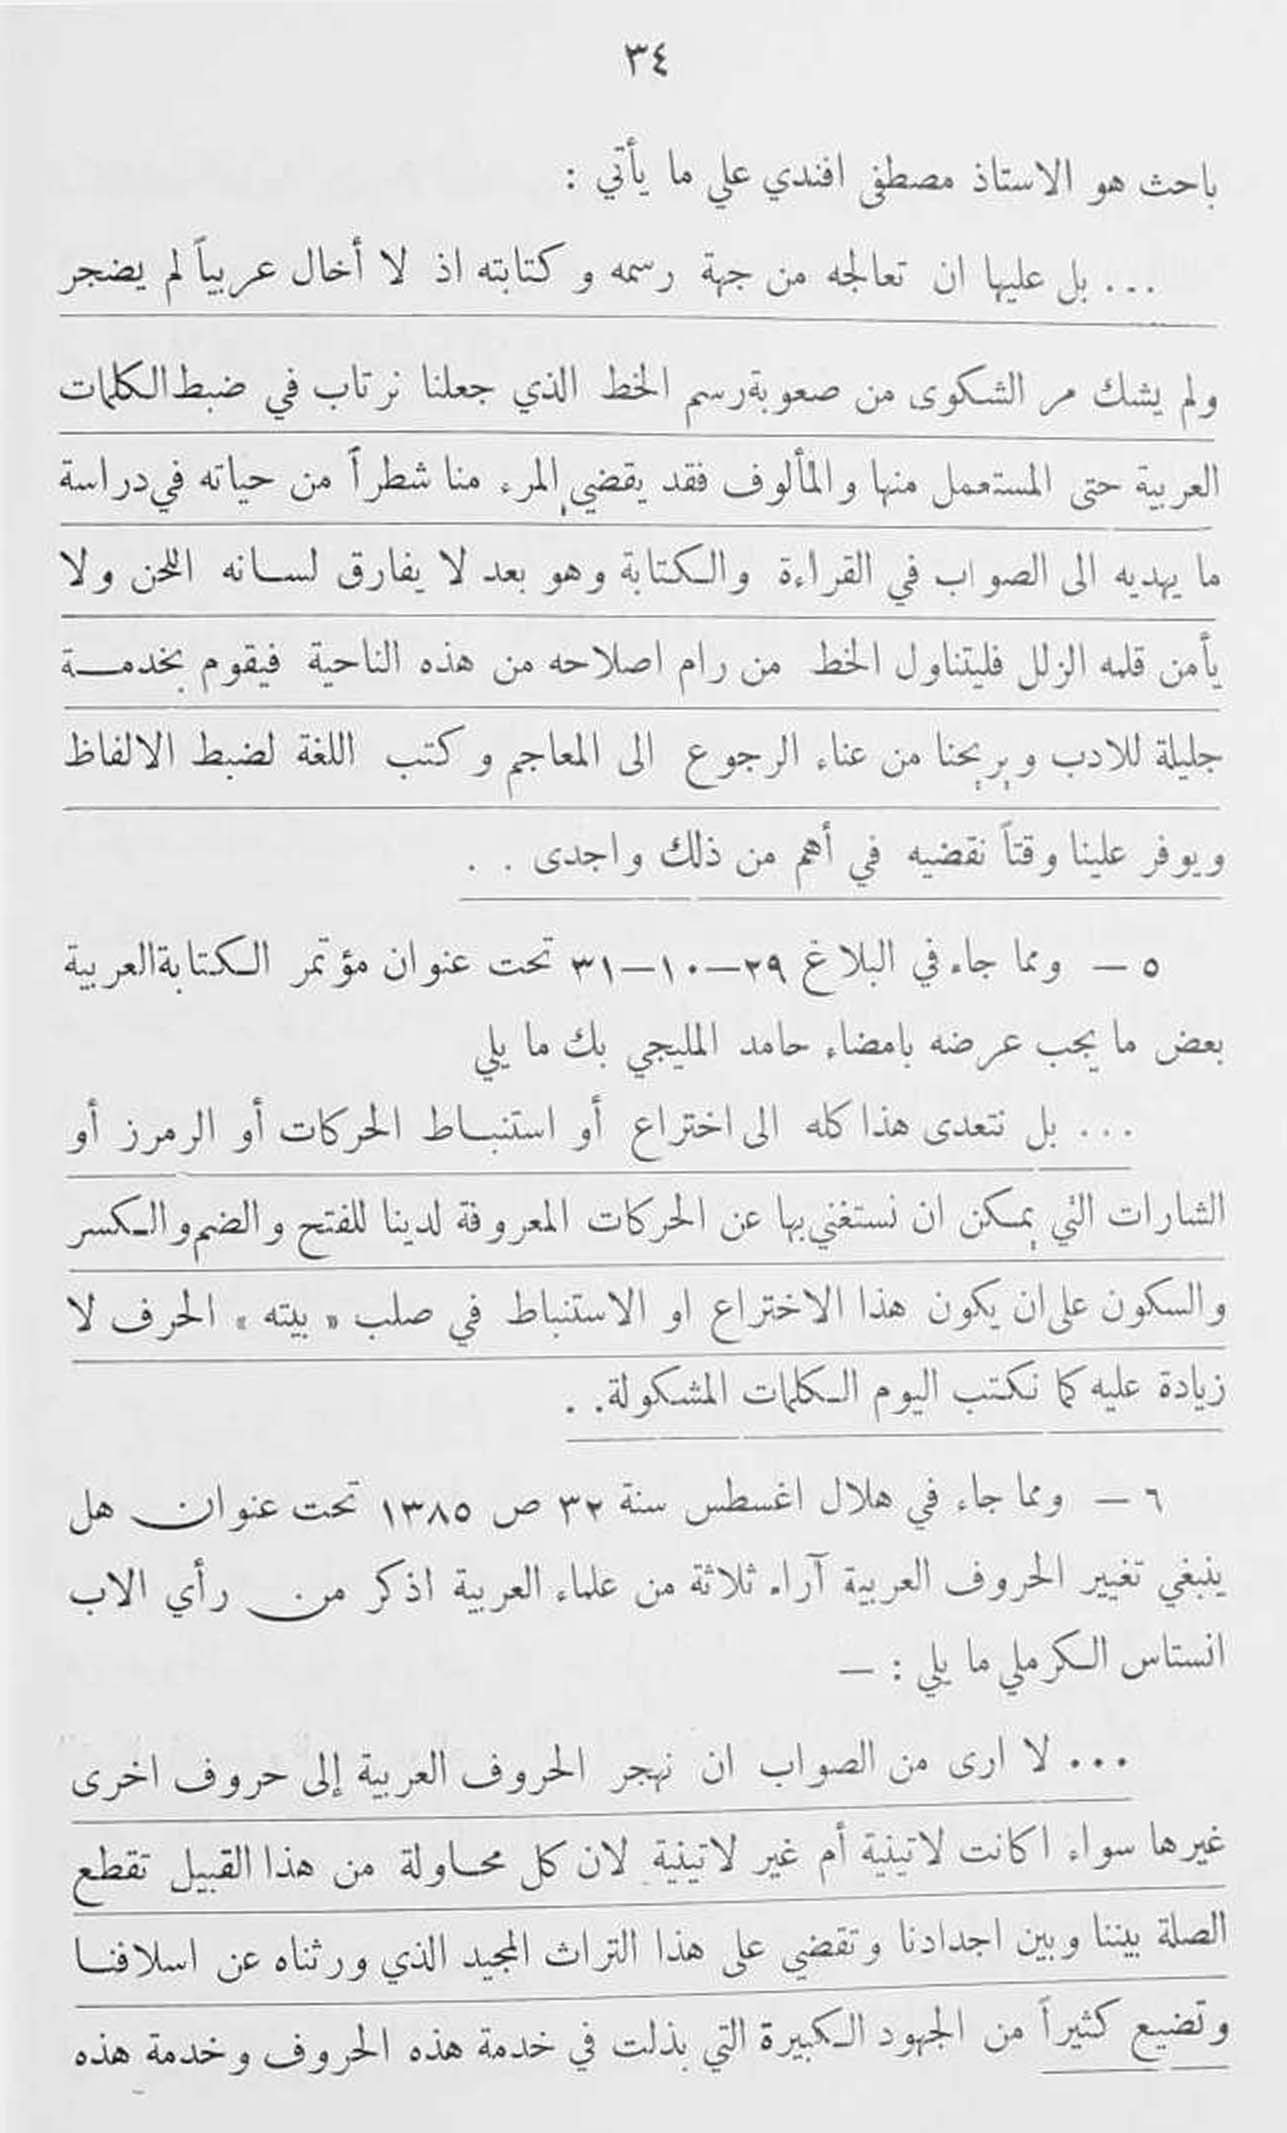 ٣٤
باحث هو الاستاذ مصطفى افندي علي ما يأتي :
... بل عليها ان تعالجه من جهة رسمه و كتابته اذ لا أخال عربياً لم يضجر
ولم يشك مر الشكوى من صعوبة رسم الخط الذي جعلنا نرتاب في ضبط الكلمات
العربية حتى المستعمل منها والمألوف فقد يقضي المرء منا شطراً من حياته في دراسة
ما يهديه الى الصواب في القراءة والكتابة وهو بعد لا يفارق لسانه اللحن ولا
يأمن قلمه الزلل فليتناول الخط من رام اصلاحه من هذه الناحية فيقوم بخدمة
جليلة للادب ويريحنا من عناء الرجوع الى المعاجم وكتب اللغة لضبط الالفاظ
ويوفر علينا وقتاً نقضيه في أهم من ذلك واجدى . .
٥ — ومما جاء في البلاغ ٢٩—١٠—٣١ تحت عنوان مؤتمر الكتابة العربية
بعض ما يجب عرضه بامضاء حامد المليجي بك ما يلي
... بل نتعدى هذا كله الى اختراع أو استنباط الحركات أو الرمرز أو
الشارات التي يمكن ان نستغني بها عن الحركات المعروفة لدينا للفتح والضم والكسر
والسكون على ان يكون هذا الاختراع او الاستنباط في صلب « بيته » الحرف لا
زيادة عليه كما نكتب اليوم الكلمات المشكولة. .
٦ — ومما جاء في هلال اغسطس سنة ٣٢ ص ١٣٨٥ تحت عنوان هل
ينبغي تغيير الحروف العربية آراء ثلاثة من علماء العربية اذكر من رأي الاب
انستاس الكرملي ما يلي : —
... لا ارى من الصواب ان نهجر الحروف العربية إلى حروف اخرى
غيرها سواء اكانت لاتينية أم غير لاتينية لان كل محاولة من هذا القبيل تقطع
الصلة بيننا وبين اجدادنا وتقضي على هذا التراث المجيد الذي ورثناه عن اسلافنا
وتضيع كثيراً من الجهود الكبيرة التي بذلت في خدمة هذه الحروف وخدمة هذه